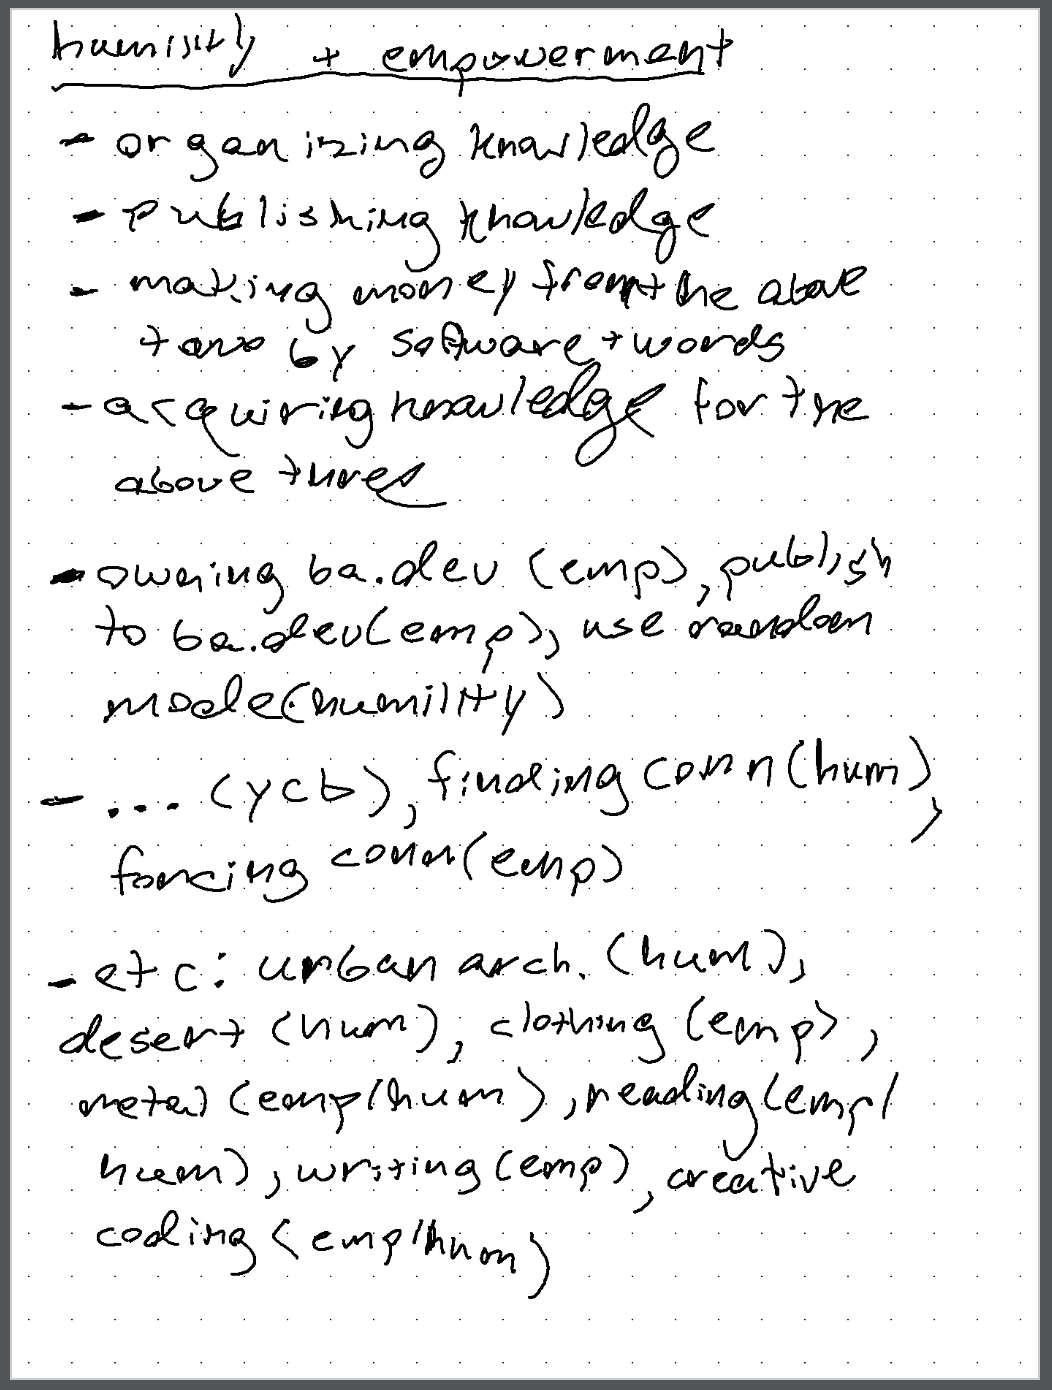 humility + empowerment
- organizing knowledge
- publishing knowledge
- making money from the above
two by software + words
- acquiring knowledge for the
above three
- owning ba.dev (emp), publish
to ba.dev (emp), use random
mode (humility)
- ... (ycb), finding conn (hum),
forcing conn (emp)
- etc: urban arch. (hum),
desert (hum), clothing (emp),
metal (emp/hum), reading (emp/
hum), writing (emp), creative
coding (emp/hum)